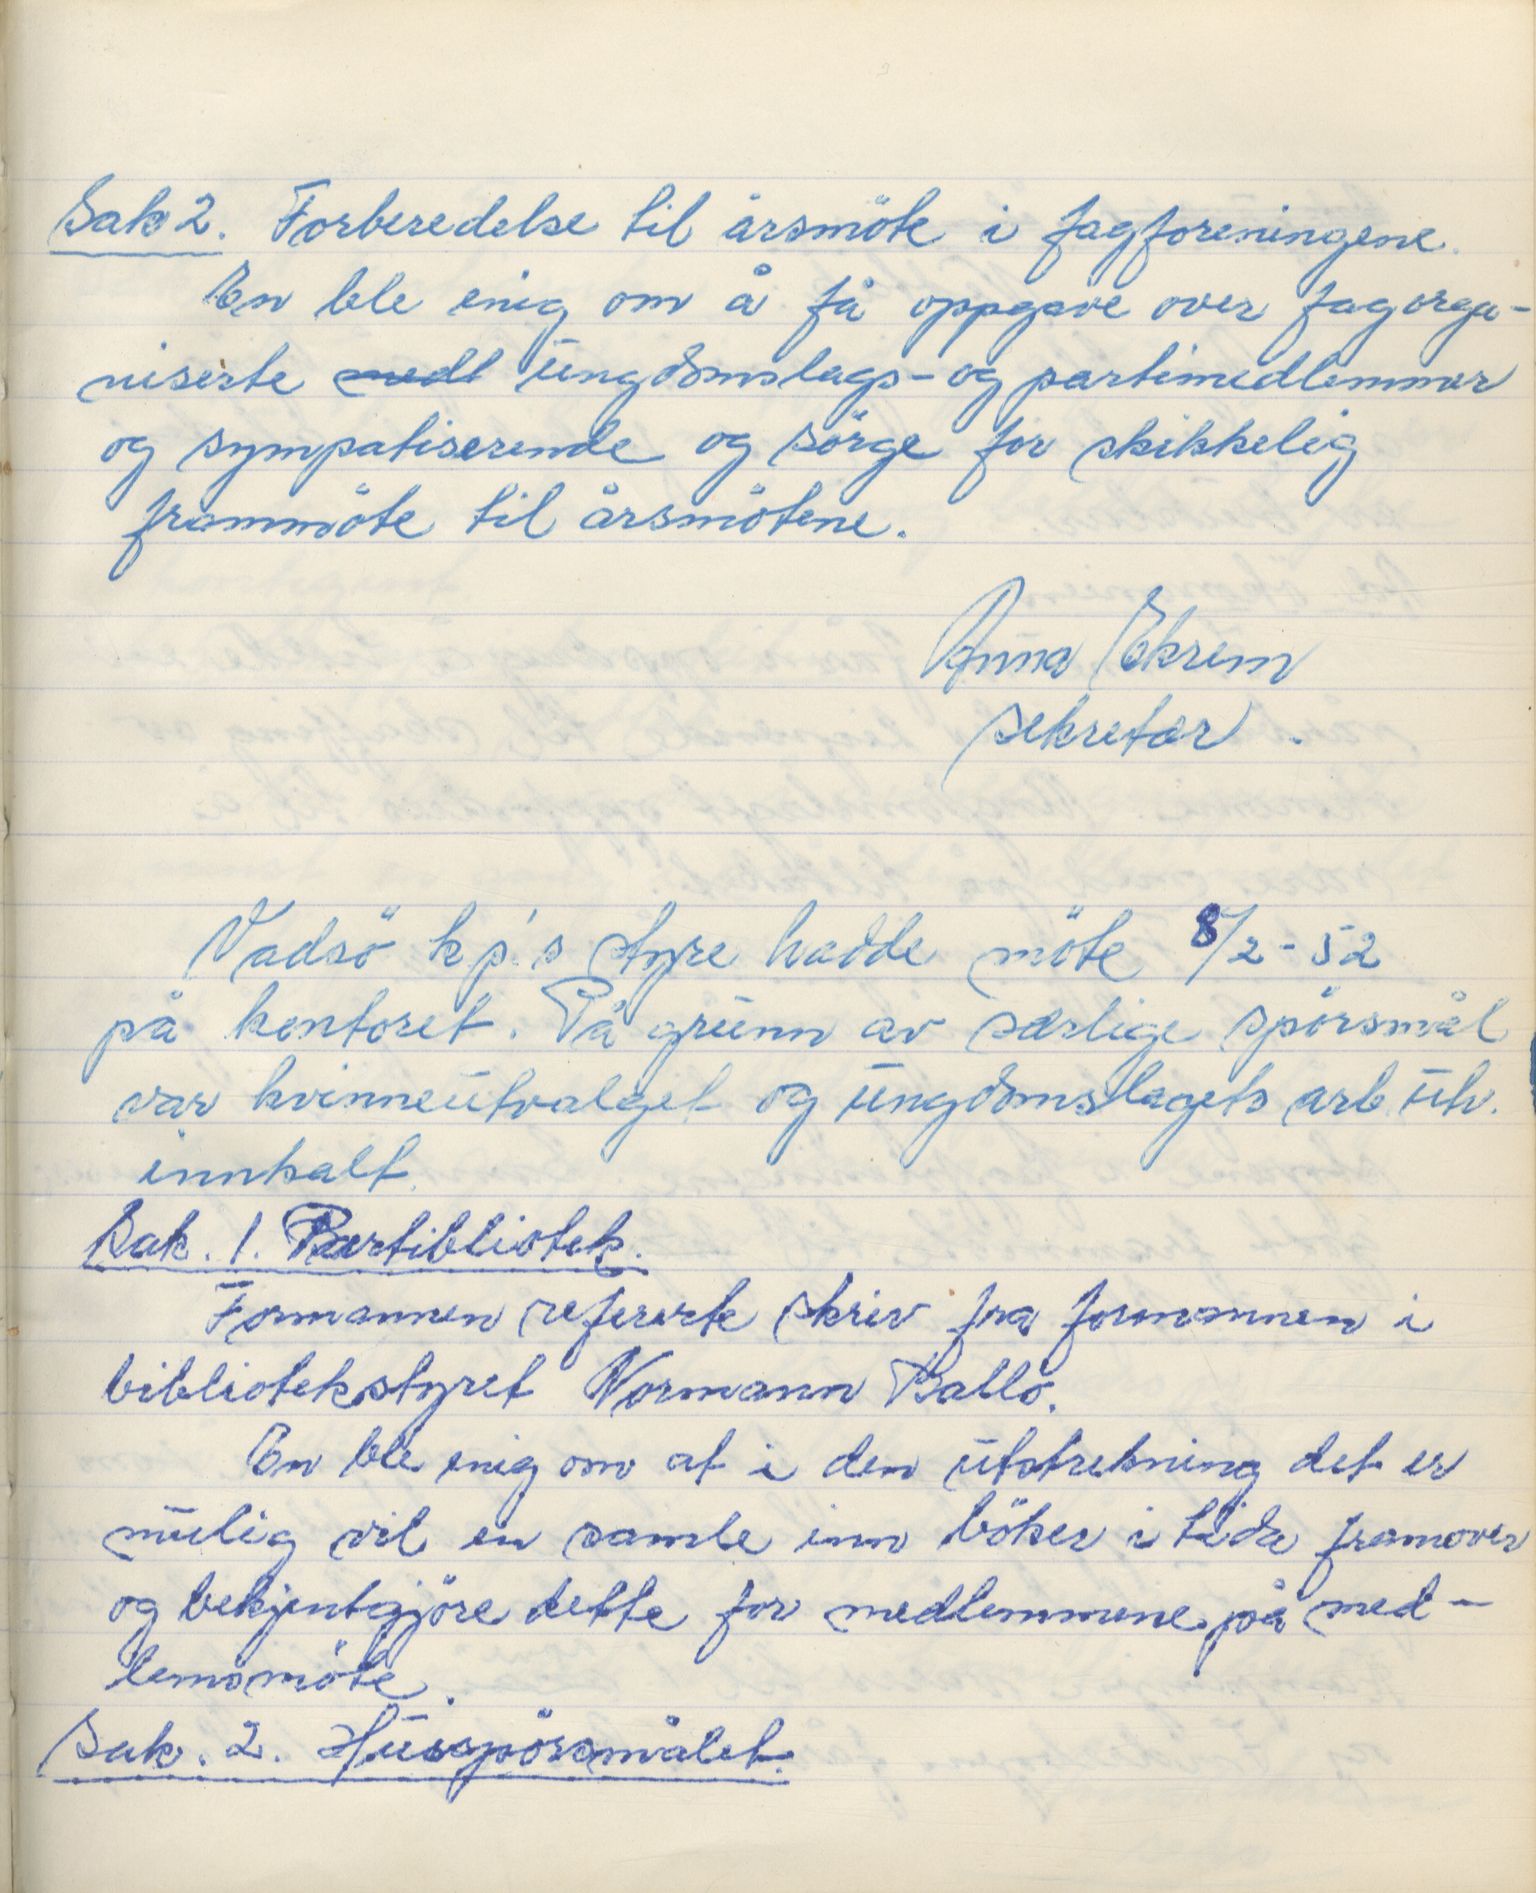 Sak 2. Forberedelse til årsmöte i fagforeningene.
En ble enig om å få oppgave over fagorga-
niserte medl ungdomslags- og partimedlemmer
og sympatiserende og sörge for skikkelig
frammöte til årsmötene.
Anna Ekrem
sekretær.
Vadsö k p's styre hadde möte 8/2-52
på kontoret. På grunn av særlige spörsmål
var kvinneutvalget og ungdomslagets arb. utv.
innkalt.
Sak. 1. Partibibliotek.
Formannen refererte skriv fra formannen i
bibliotekstyret Normann Ballo.
En ble enig om at i den utstrekning det er
mulig vil en samle inn böker i tida framover
og bekjentgjöre dette for medlemmene på med-
lemsmöte.
Sak. 2. Husspörsmålet.